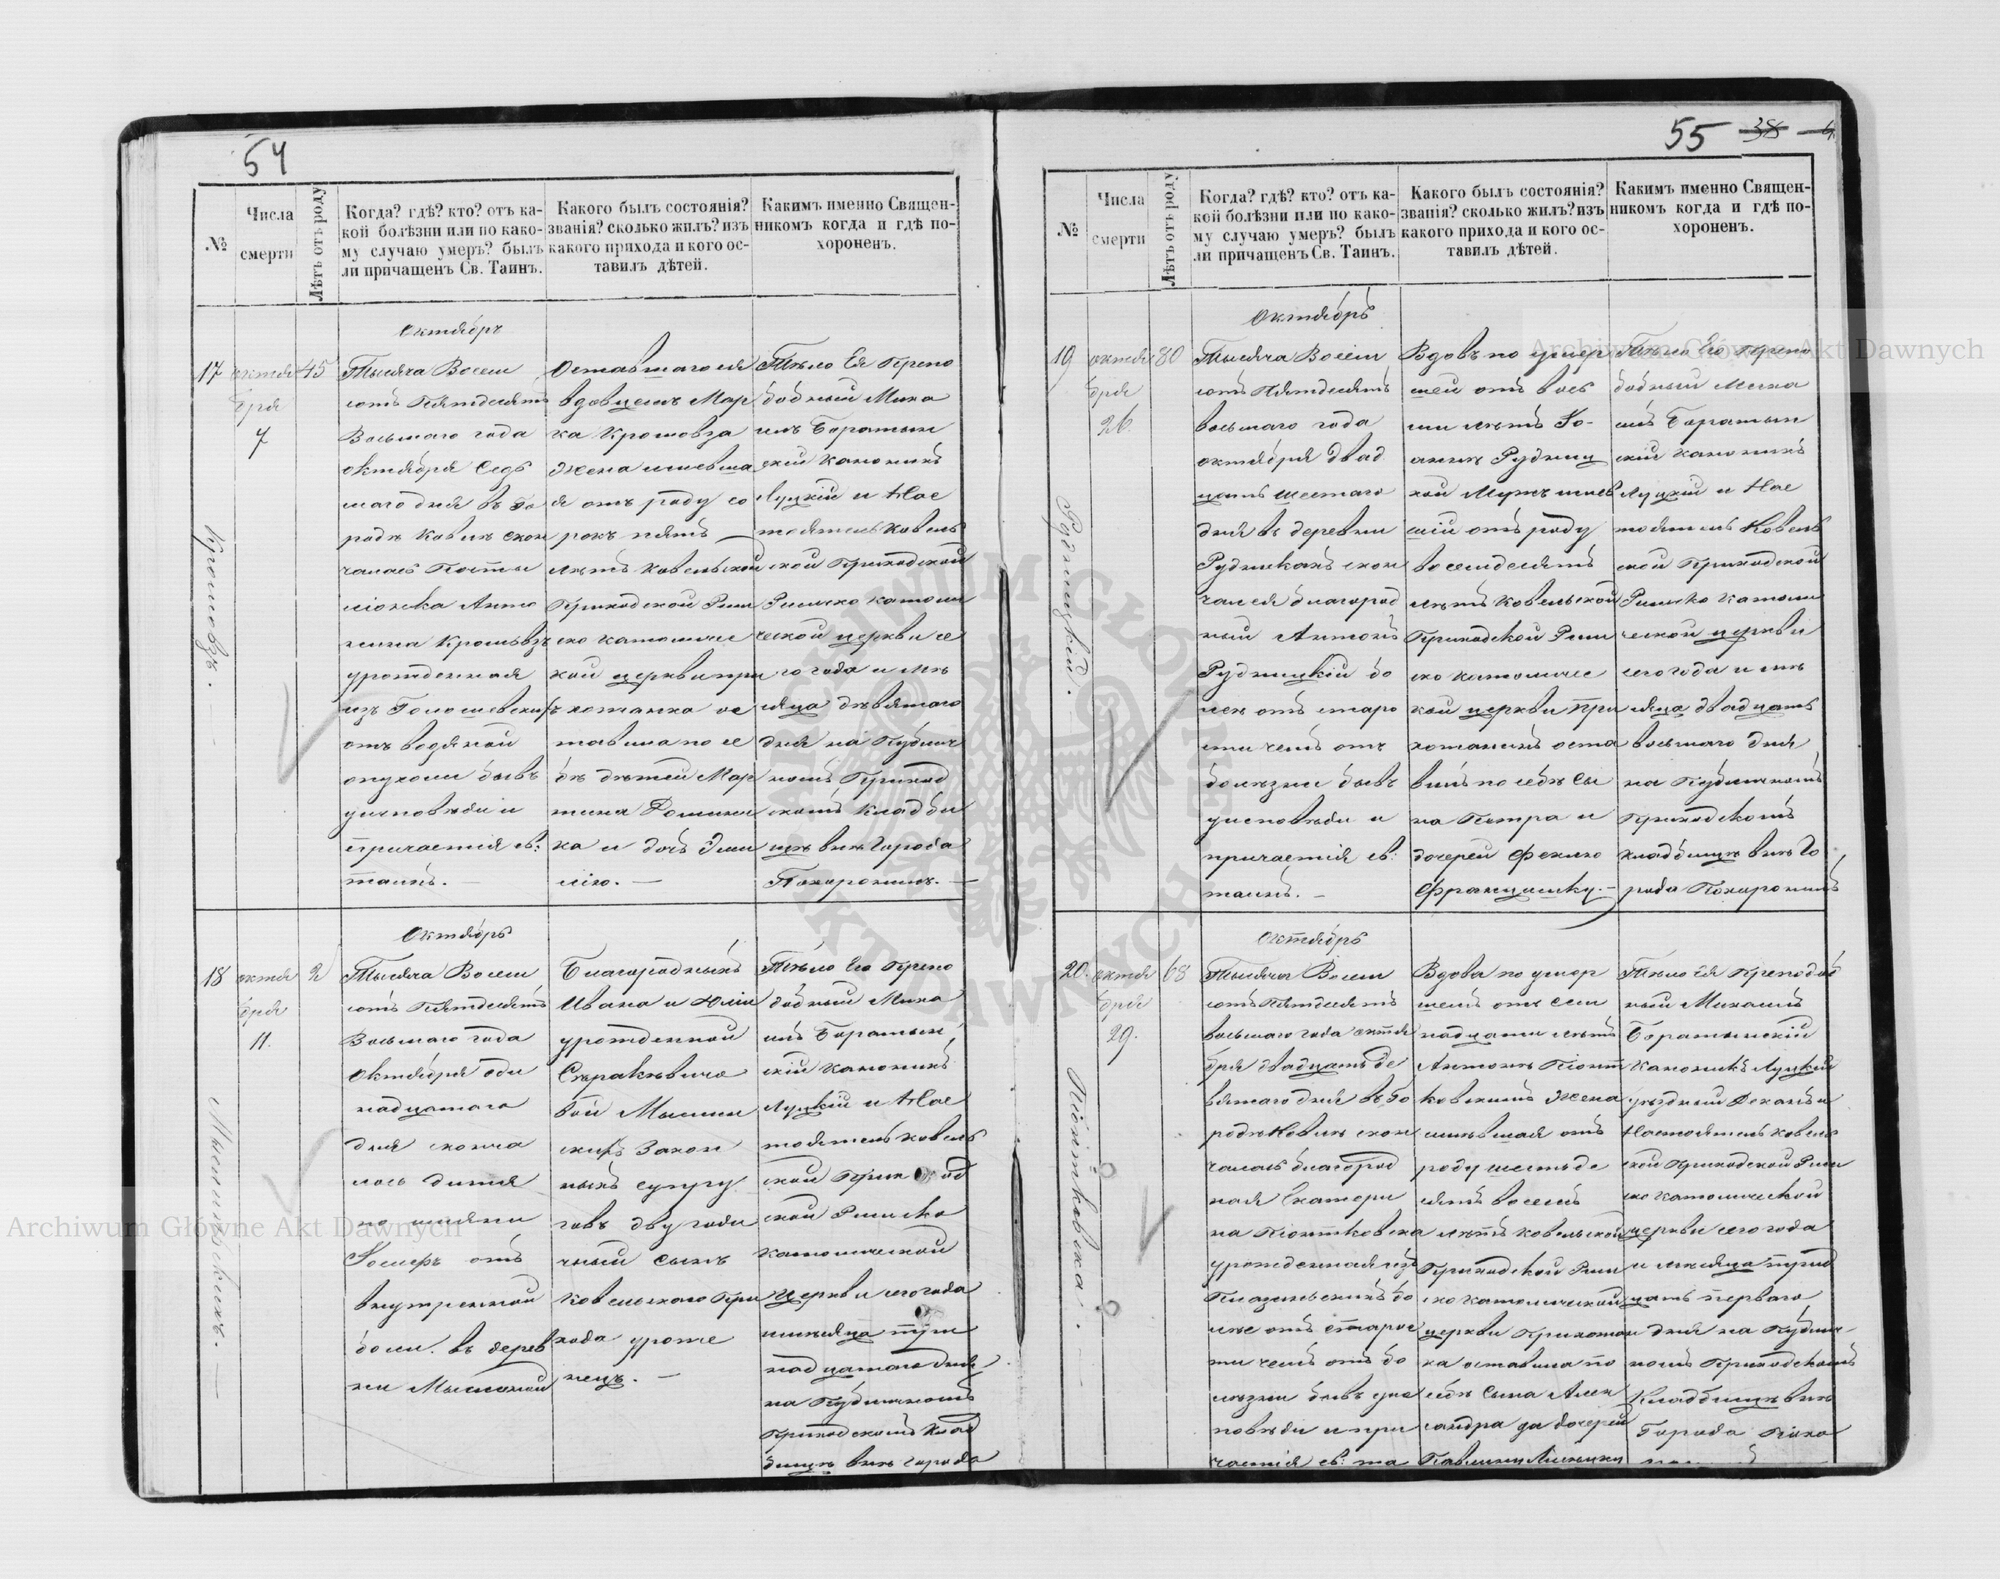 54
№
Числа
смерти
Лѣтъ отъ роду
Когда? гдѣ? кто? отъ ка-
кой болѣзни или по како-
му случаю умеръ? былъ
ли причащенъ Св. Таинъ.
Какого былъ состоянія?
званія? сколько жилъ? изъ
какого прихода и кого ос-
тавилъ дѣтей.
Какимъ именно Священ-
никомъ когда и гдѣ по-
хороненъ.
17
октя
бря
7
45
Кромовзъ.
Октябрь
Тысяча Восем
сотъ Пятдесятъ
Восьмаго года
октября Седь
маго дня въ Го
родѣ Ковлѣ скон
чалась
Анто
нина
урожденная
изъ
отъ водяной
опухоли бывъ
у исповѣди и
причастія св:
таинъ. —
Оставшагося
вдовцемъ Мар
ка
жена имевша
я отъ роду со
рокъ пять
лѣтъ Ковельской
Приходской Рим
ско католичес
кой церкви при
хожанка ос
тавила по се
бѣ дѣтей Мар
тина Домини
ка и дочь Эми
лію. —
Тѣло Ея Препо
добный Миха
илъ Боратын
скій Каноникъ
Луцкій и Нас
тоятель Ковель
ской Приходской
Римско католи
ческой церкви се
го года и мѣ
сяца девятаго
дня на Публич
номъ Приход
скомъ Кладби
щѣ внѣ Города
Похоронилъ. —
18
октя
бря
11.
2
Октябрь
Тысяча Восем
сотъ Пятдесятъ
Восьмаго года
Октября оди
надцатаго
дня сконча
лось дитя
по имяни
отъ
внутренной
боли. въ дерев
ни
Благородныхъ
Ивана и Юліи
урожденной
вой
скихъ Закон
ныхъ супру
говъ двугоди
чный сынъ
Ковельскаго При
хода уроже
нецъ. —
Тѣло Его Препо
добный Миха
илъ Боратын
скій Каноникъ
Луцкій и Нас
тоятель Ковель
ской Приход
ской Римско
католической
Церкви сего года
и мѣсяца три
надцатаго дня
на Публичномъ
Приходскомъ Клад
бищѣ внѣ города
55
38
№
Числа
смерти
Лѣтъ отъ роду
Когда? гдѣ? кто? отъ ка-
кой болѣзни или по како-
му случаю умеръ? былъ
ли причащенъ Св. Таинъ.
Какого былъ состоянія?
званія? сколько жилъ? изъ
какого прихода и кого ос-
тавилъ дѣтей.
Какимъ именно Священ-
никомъ когда и гдѣ по-
хороненъ.
19
октя
бря
26
80
Рудницкій.
Октябрь
Тысяча Восем
сотъ Пятдесятъ
восьмаго года
октября двад
цать шестаго
дня въ деревни
скон
чался благород
ный Антонъ
Рудницкій бо
лѣе отъ старо
сти чемъ отъ
болѣзни бывъ
у исповѣди и
причастія св:
таинъ. —
Вдовъ по умер
шей отъ вось
ми лѣтъ Іо-
аннѣ Рудниц
кой Мужъ имев
шій отъ роду
восемдесятъ
лѣтъ Ковельской
Приходской Рим
ско католичес
кой церкви При
хожанинъ оста
вилъ по себѣ сы
на Петра и
дочерей Феклю
Францишку. —
Тѣло Его Препо
добный Миха
илъ Боратын
скій Каноникъ
Луцкій и Нас
тоятель Ковель
ской Приходской
Римско Католи
ческой церкви
сего года и мѣ
сяца двадцать
восьмаго дня
на Публичномъ
Приходскомъ
кладбищѣ внѣ Го
рода Похоронилъ
20.
октя
бря
29.
68
Піонтковска.
Октябрь
Тысяча Восем
сотъ Пятдесятъ
восьмаго года октя
бря двадцать де
вятаго дня въ Го
родѣ Ковлѣ скон
чалась благород
ная Екатери
на Піонтковска
урожденная изъ
бо
лѣе отъ старос
ти чемъ отъ бо
лѣзни бывъ у ис
повѣди и при
частія св: та
Вдова по умер
шемъ отъ сем
надцати лѣтъ
Антонѣ Піонт
ковскимъ Жена
имѣвшая отъ
роду шестьде
сятъ восемъ
лѣтъ Ковельской
Приходской Рим
ско католической
церкви Прихожан
ка оставила по
себѣ Сына Алек
сандра да дочерей
Павлину
Тѣло Ея Преподоб
ный Михаилъ
Боратынскій
Каноникъ Луцкій
уѣздный Деканъ и
Настоятель Ковель
ской Приходской Рим
ско католической
церкви сего года
и мѣсяца трид
цать перваго
дня на Публич-
номъ Приходскомъ
Кладбищѣ внѣ
Города Похо
Archiwum Główne Akt Dawnych
Archiwum Główne Akt Dawnych
ARCHIWUM GŁÓWNE AKT DAWNYCH